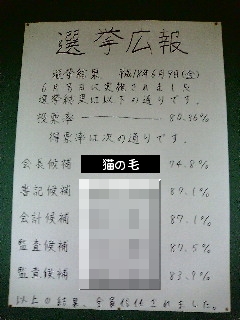 選挙広報
選挙結果 平成18年6月9日(金)
6月8日に実施されました
選挙結果は以下の通りです。
投票率 80.46%
得票率は次の通りです。
会長候補 猫の毛 74.8%
書記候補 87.1%
会計候補 87.1%
監査候補 87.5%
監査候補 83.9%
以上の結果、全員信任されました。